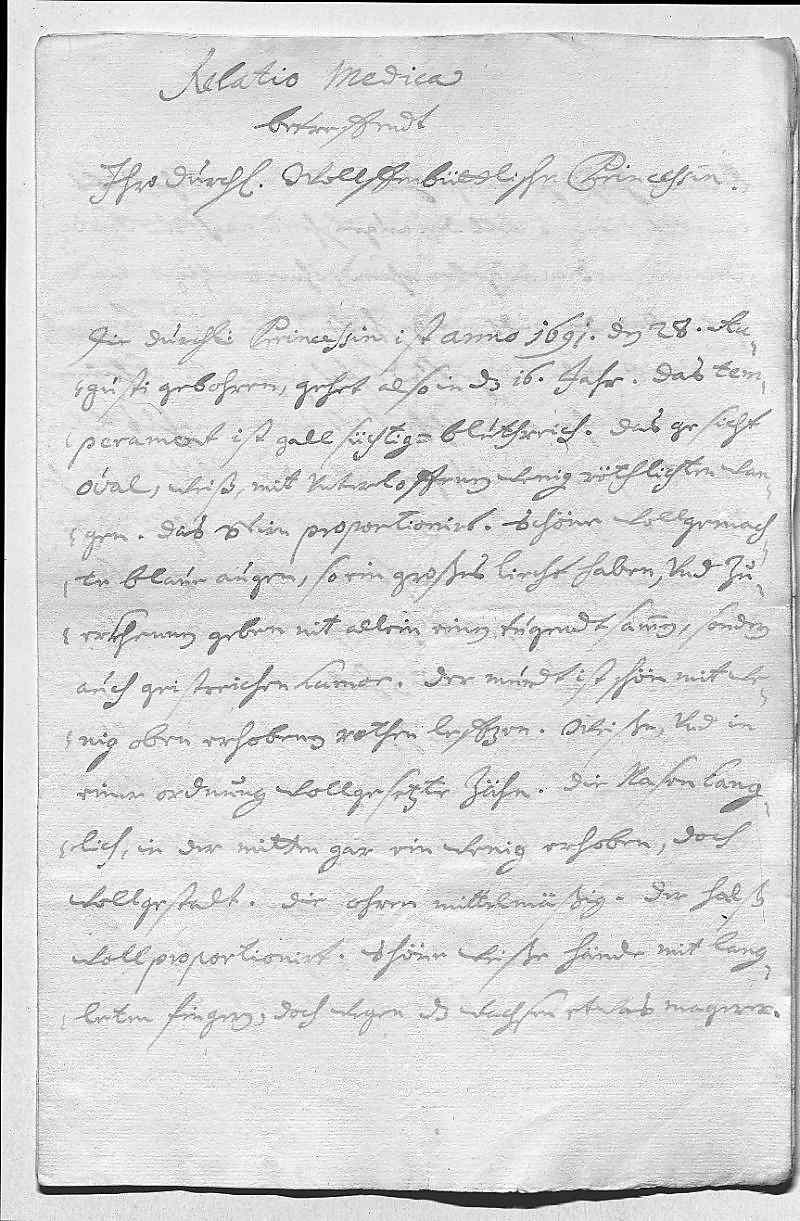 Relatio Medica
betreffendt
Ihro dürchl. Wolffenbüttlische Princessin.
Die dürchl: Princessin ist anno 1691. den 28. Au-
gusti gebohren, gehet also in dz 16. Jahr. Das tem-
perament ist gallsüchtig= blüthreich. Das gesicht
oval, weiß, mit unterloffenen wenig röthlichten wan-
gen. das proportionirt. Schöne wollgemach-
te blaue augen, so ein großes liecht haben, und zu
erkhennen geben nit allein einen tugendtsamen, sonder
auch geistreichen humor. Der mundt ist schön mit we-
nig oben erhobenen rothen lefftzen. Weiße, und in
einer ordnung wollgesetzte Zähn. Die Nasen lang-
lich, in der mitten gar ein wenig erhoben, doch
wollgestalt. Die ohren mittelmäßig. Der halß
wollproportionirt. Schöne weiße hände mit lang-
leten fingern, doch wegen dz wachsen etwas magerer.